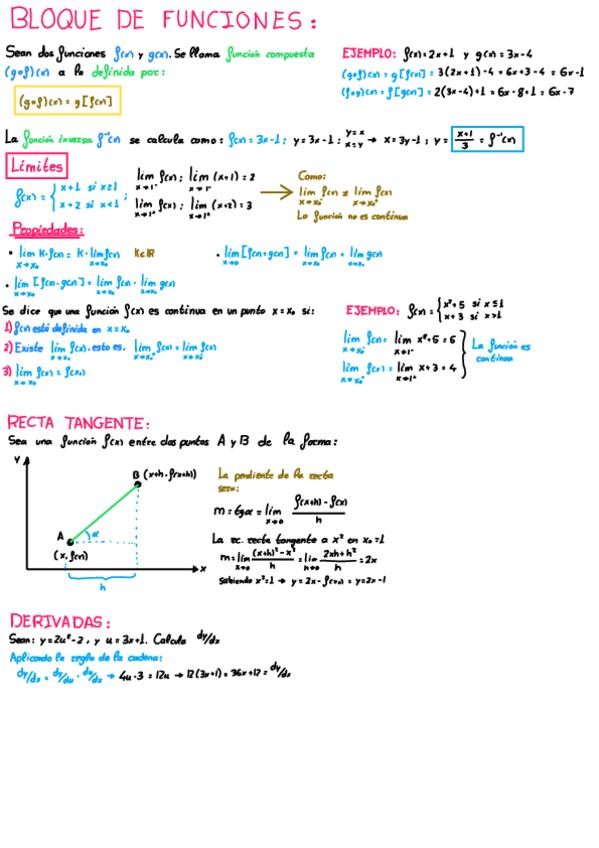 BLOQUE DE FUNCIONES:
Sean dos funciones f(x) y g(x). Se llama función compuesta
(g∘f)(x) a la definida por:
(g∘f)(x) = g[f(x)]
EJEMPLO: f(x)=2x+1 y g(x)=3x-4
(g∘f)(x) = g[f(x)] = 3(2x+1)-4 = 6x+3-4 = 6x-1
(f∘g)(x) = f[g(x)] = 2(3x-4)+1 = 6x-8+1 = 6x-7
La función inversa f⁻¹(x) se calcula como: f(x)=3x-1; y=3x-1; y=x x=y → x=3y-1; y= (x+1)/3 = f⁻¹(x)
Límites
f(x) = { x+1 si x≥1 ; x+2 si x<1 ;
lim x→1⁻ f(x); lim x→1⁻ (x+1)=2
lim x→1⁺ f(x); lim x→1⁺ (x+2)=3
Como:
lim f(x) ≠ lim f(x)
La función no es continua
Propiedades:
• lim x→x₀ k·f(x) = k·lim x→x₀ f(x) K∈ℝ
• lim [f(x)+g(x)] = lim f(x) + lim g(x)
• lim x→x₀ [f(x)·g(x)] = lim x→x₀ f(x) · lim x→x₀ g(x)
Se dice que una función f(x) es continua en un punto x=x₀ si:
1) f(x) está definida en x=x₀
2) Existe lim x→x₀ f(x), esto es, lim x→x₀⁺ f(x) = lim x→x₀⁻ f(x)
3) lim x→x₀ f(x) = f(x₀)
EJEMPLO: f(x) = { x²+5 si x≤1 x+3 si x>1
lim x→x₀⁻ f(x) = lim x→1⁻ x²+5 = 6
lim x→x₀⁺ f(x) = lim x→1⁺ x+3 = 4
La función es
continua
RECTA TANGENTE:
Sea una función f(x) entre dos puntos A y B de la forma:
Y
B (x+h, f(x+h))
A
α
(x, f(x))
x
h
La pendiente de la recta
será:
m = tgα = lim x→0 (f(x+h) - f(x))/h
La ec. recta tangente a x² en x₀=1
m = lim h→0 ((x+h)²-x²)/h = lim h→0 (2xh+h²)/h = 2x
Sabiendo x²=1 → y=2x-f(x₀) = y=2x-1
DERIVADAS:
Sean: y=2u²-2, y u=3x+1. Calcula dy/dx
Aplicando la regla de la cadena:
dy/dx = dy/du · du/dx → 4u·3 = 12u → 12(3x+1) = 36x+12 = dy/dx